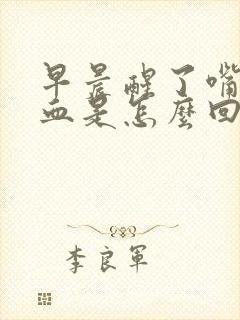 早晨醒了嘴
血是怎麼回
李良軍